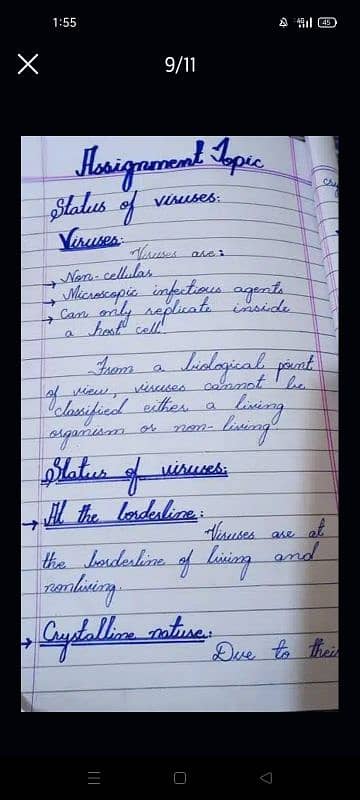 1:55
4G
45
9/11
Assignment Topic
Status of viruses:
Viruses:
Viruses are:
→ Non-cellular
→ Microscopic infectious agents
→ Can only replicate inside
a host cell
From a biological point
of view, viruses cannot be
classified either a living
organism or non-living
Status of viruses:
→ At the borderline:
Viruses are at
the borderline of living and
nonliving.
→ Crystalline nature:
Due to their